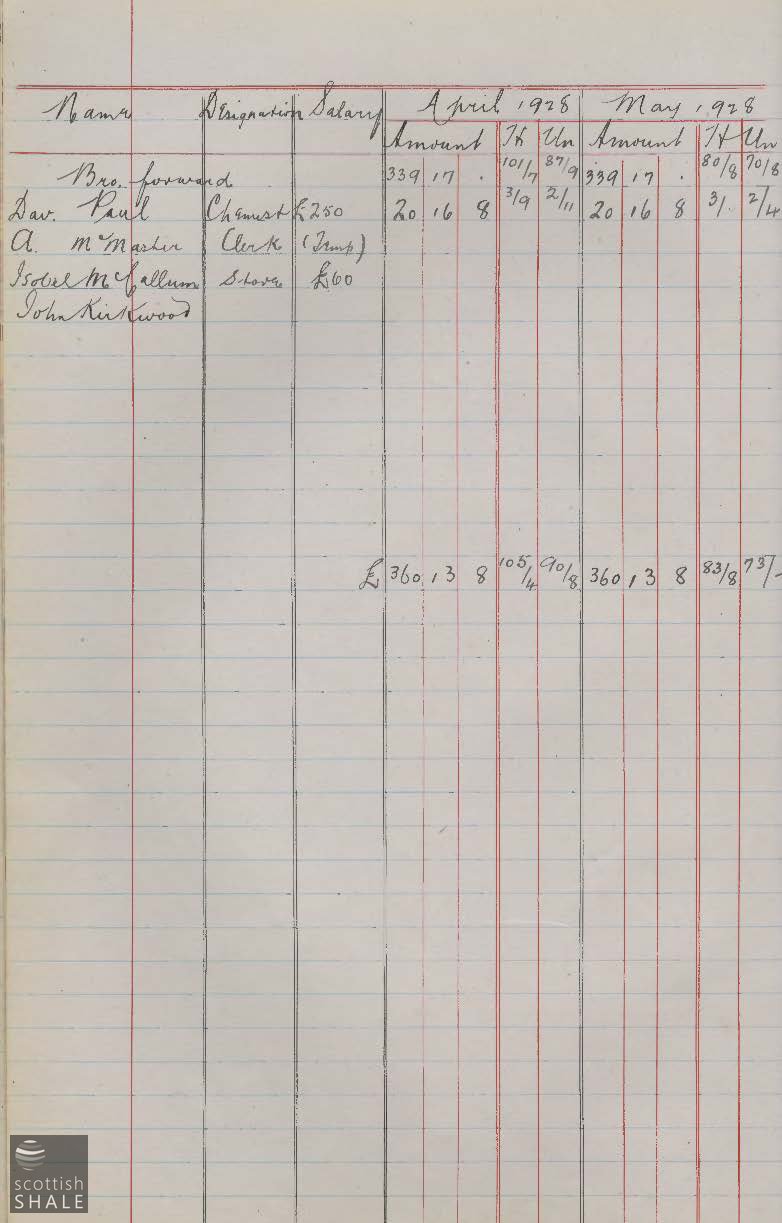 Name Designation Salary April 1928 May 1928
Amount H Un Amount H Un
Bro. forward 339 17 . 101/7 87/9 339 17 . 80/8 70/8
Dav. Paul Chemist £250 20 16 8 3/9 2/11 20 16 8 3/. 2/4
A. McMaster Clerk (Temp)
Isobel McCallum Store £60
John Kirkwood
£ 360 13 8 105/4 90/8 360 13 8 83/8 73/-
scottish
SHALE